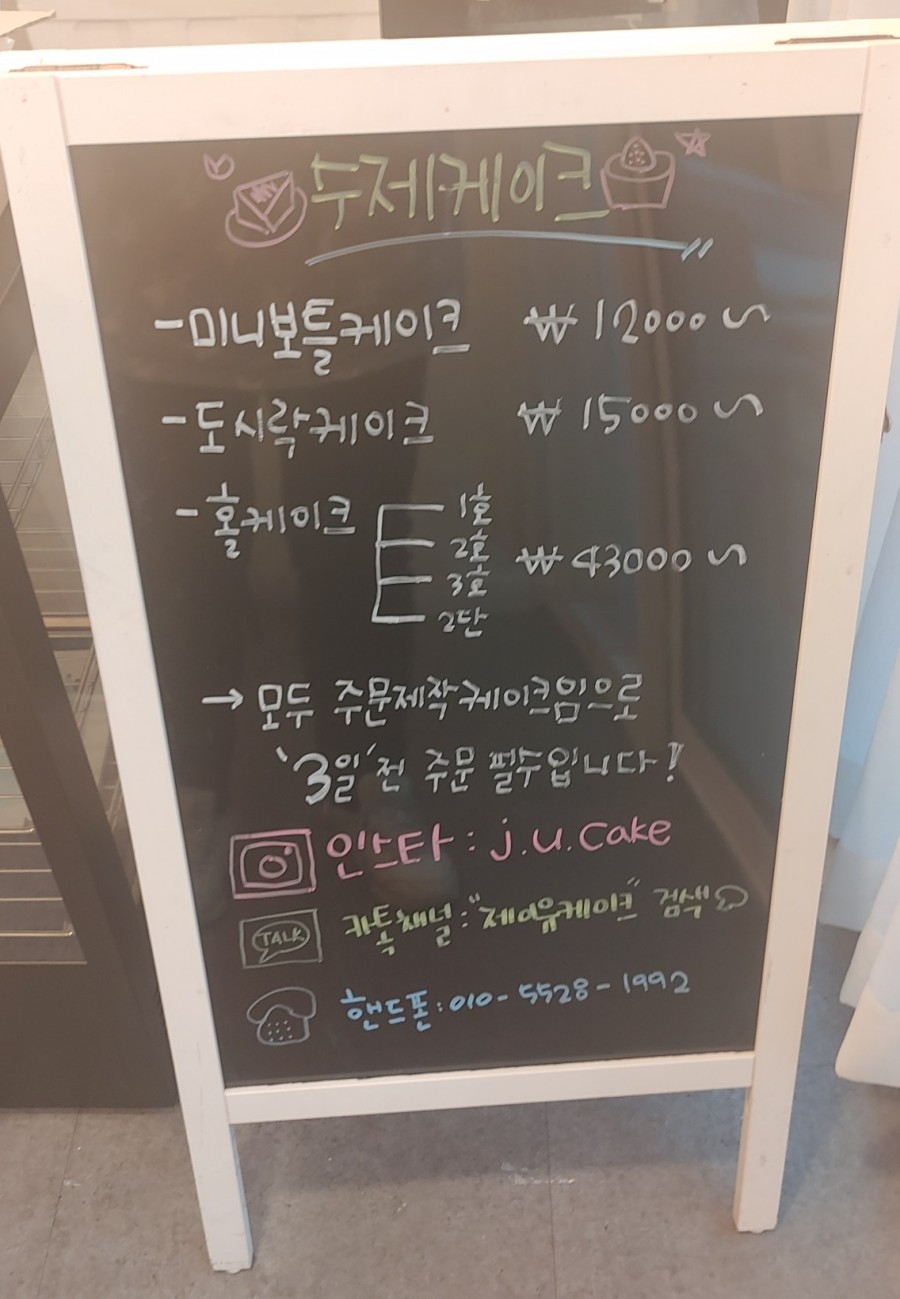 수제케이크
-미니보틀케이크 ₩12000~
-도시락케이크 ₩15000~
-홀케이크 1호
2호
3호
2단
₩43000~
→ 모두 주문제작케이크임으로
'3일'전 주문 필수입니다!
인스타: j.u.cake
TALK 카톡채널: "제이유케이크" 검색
핸드폰: 010-5528-1992